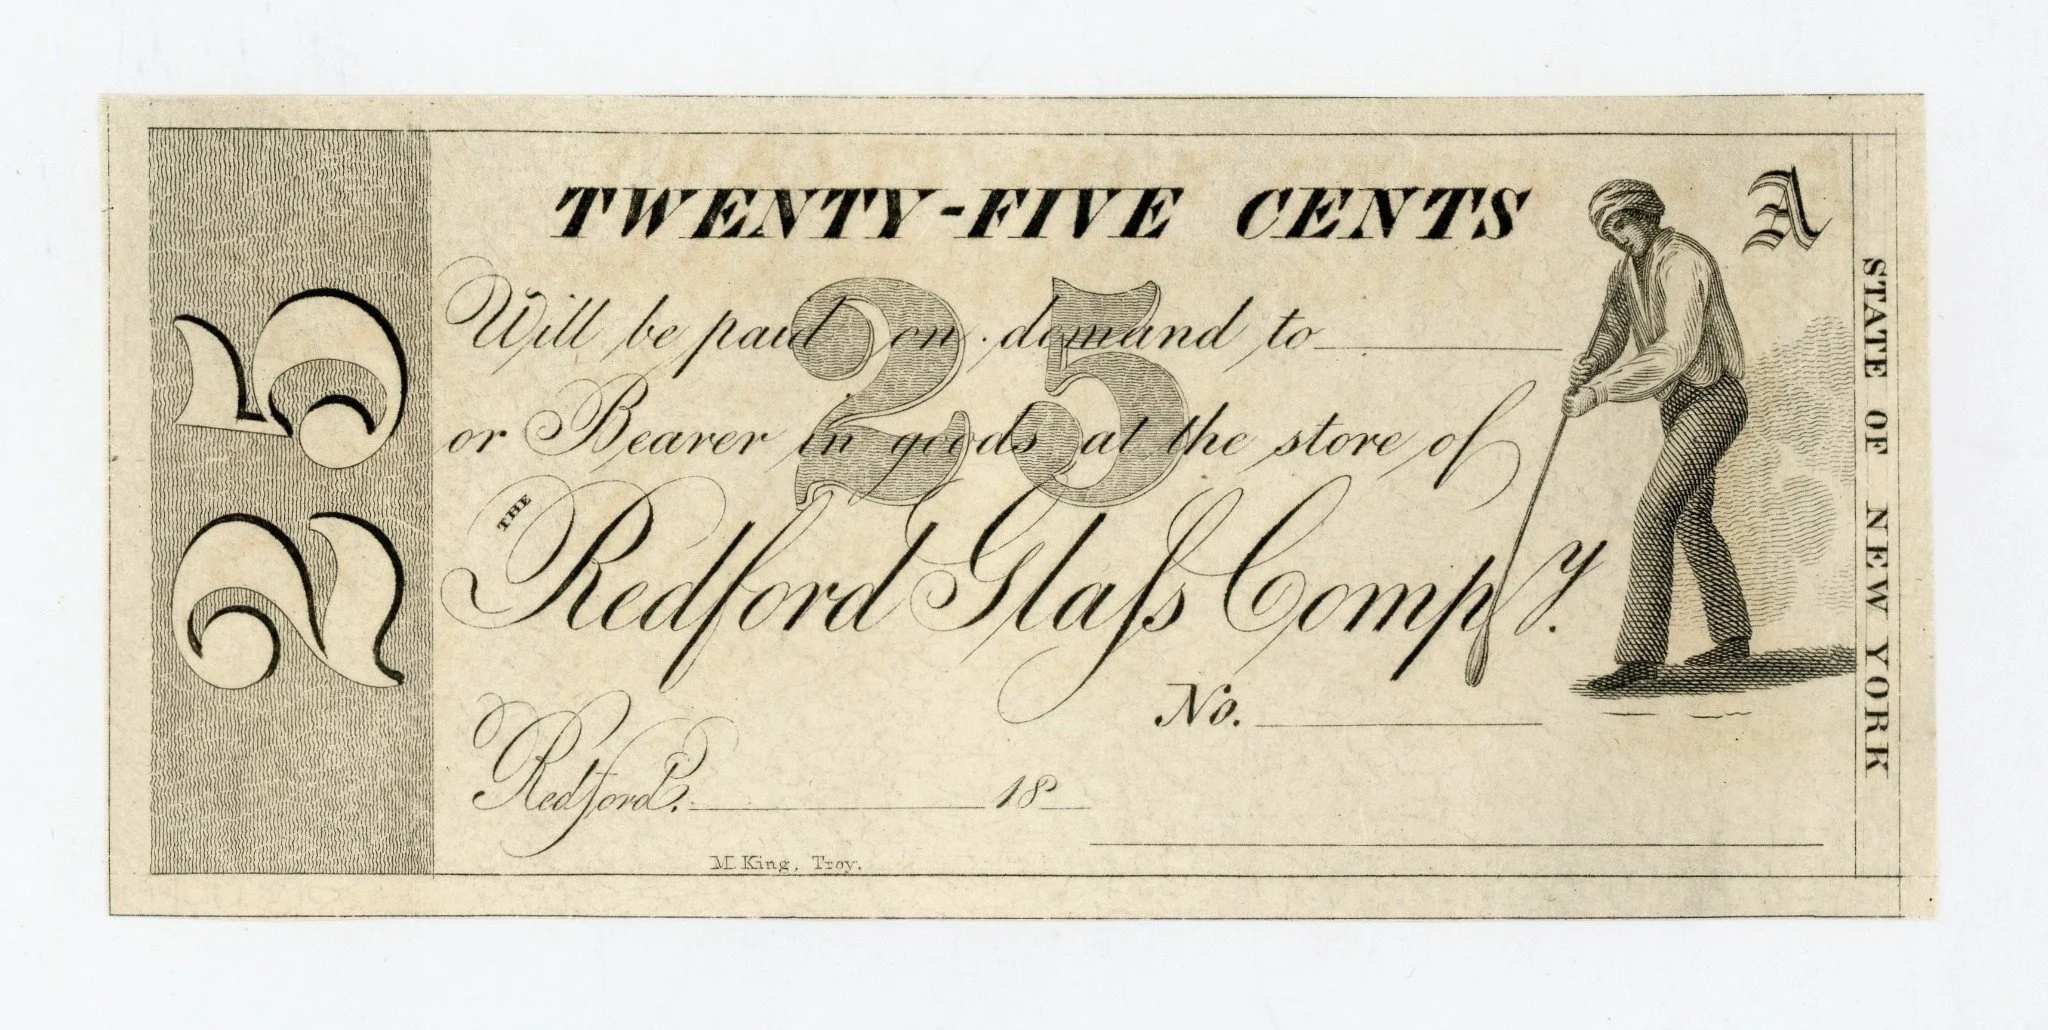 25
TWENTY-FIVE CENTS
A
25
Will be paid on demand to
or Bearer in goods at the store of
THE
Redford Glaſs Compy.
No.
Redford. 18
M. King, Troy.
STATE OF NEW YORK